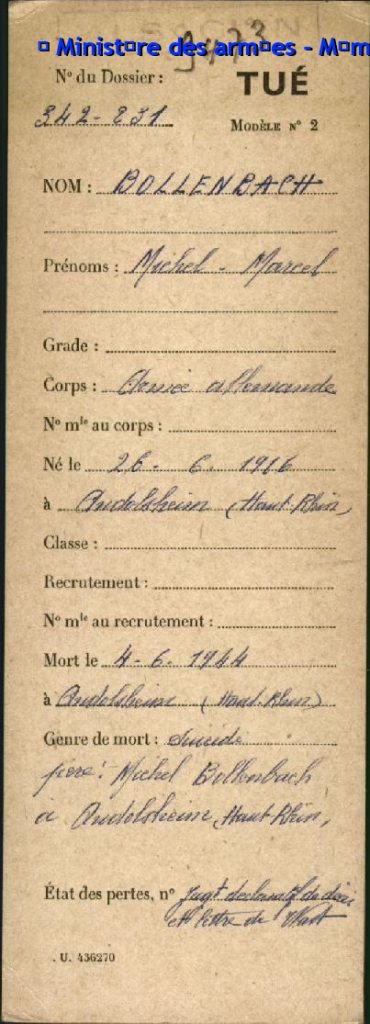 Ministère des armées - Mém
9473
N° du Dossier :
TUÉ
342-831
MODÈLE N° 2
NOM : BOLLENBACH
Prénoms : Michel - Marcel
Grade :
Corps : Armée allemande
N° mle au corps :
Né le 26- 6. 1916
à Andolsheim (Haut-Rhin)
Classe :
Recrutement :
N° mle au recrutement :
Mort le 4-6. 1944
à Andolsheim (Haut-Rhin)
Genre de mort : suicide
père : Michel Bollenbach
à Andolsheim, Haut Rhin,
État des pertes, n° Jugt déclaratif de décès
et lettre de
. U. 436270